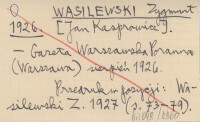 WASILEWSKI Zygmunt
1926. [Jan Kasprowicz].
— Gazeta Warszawska Poranna
(Warszawa) sierpień 1926.
Przedruk w pozycji: Wa-
silewski Z. 1927 (p. 73-79).